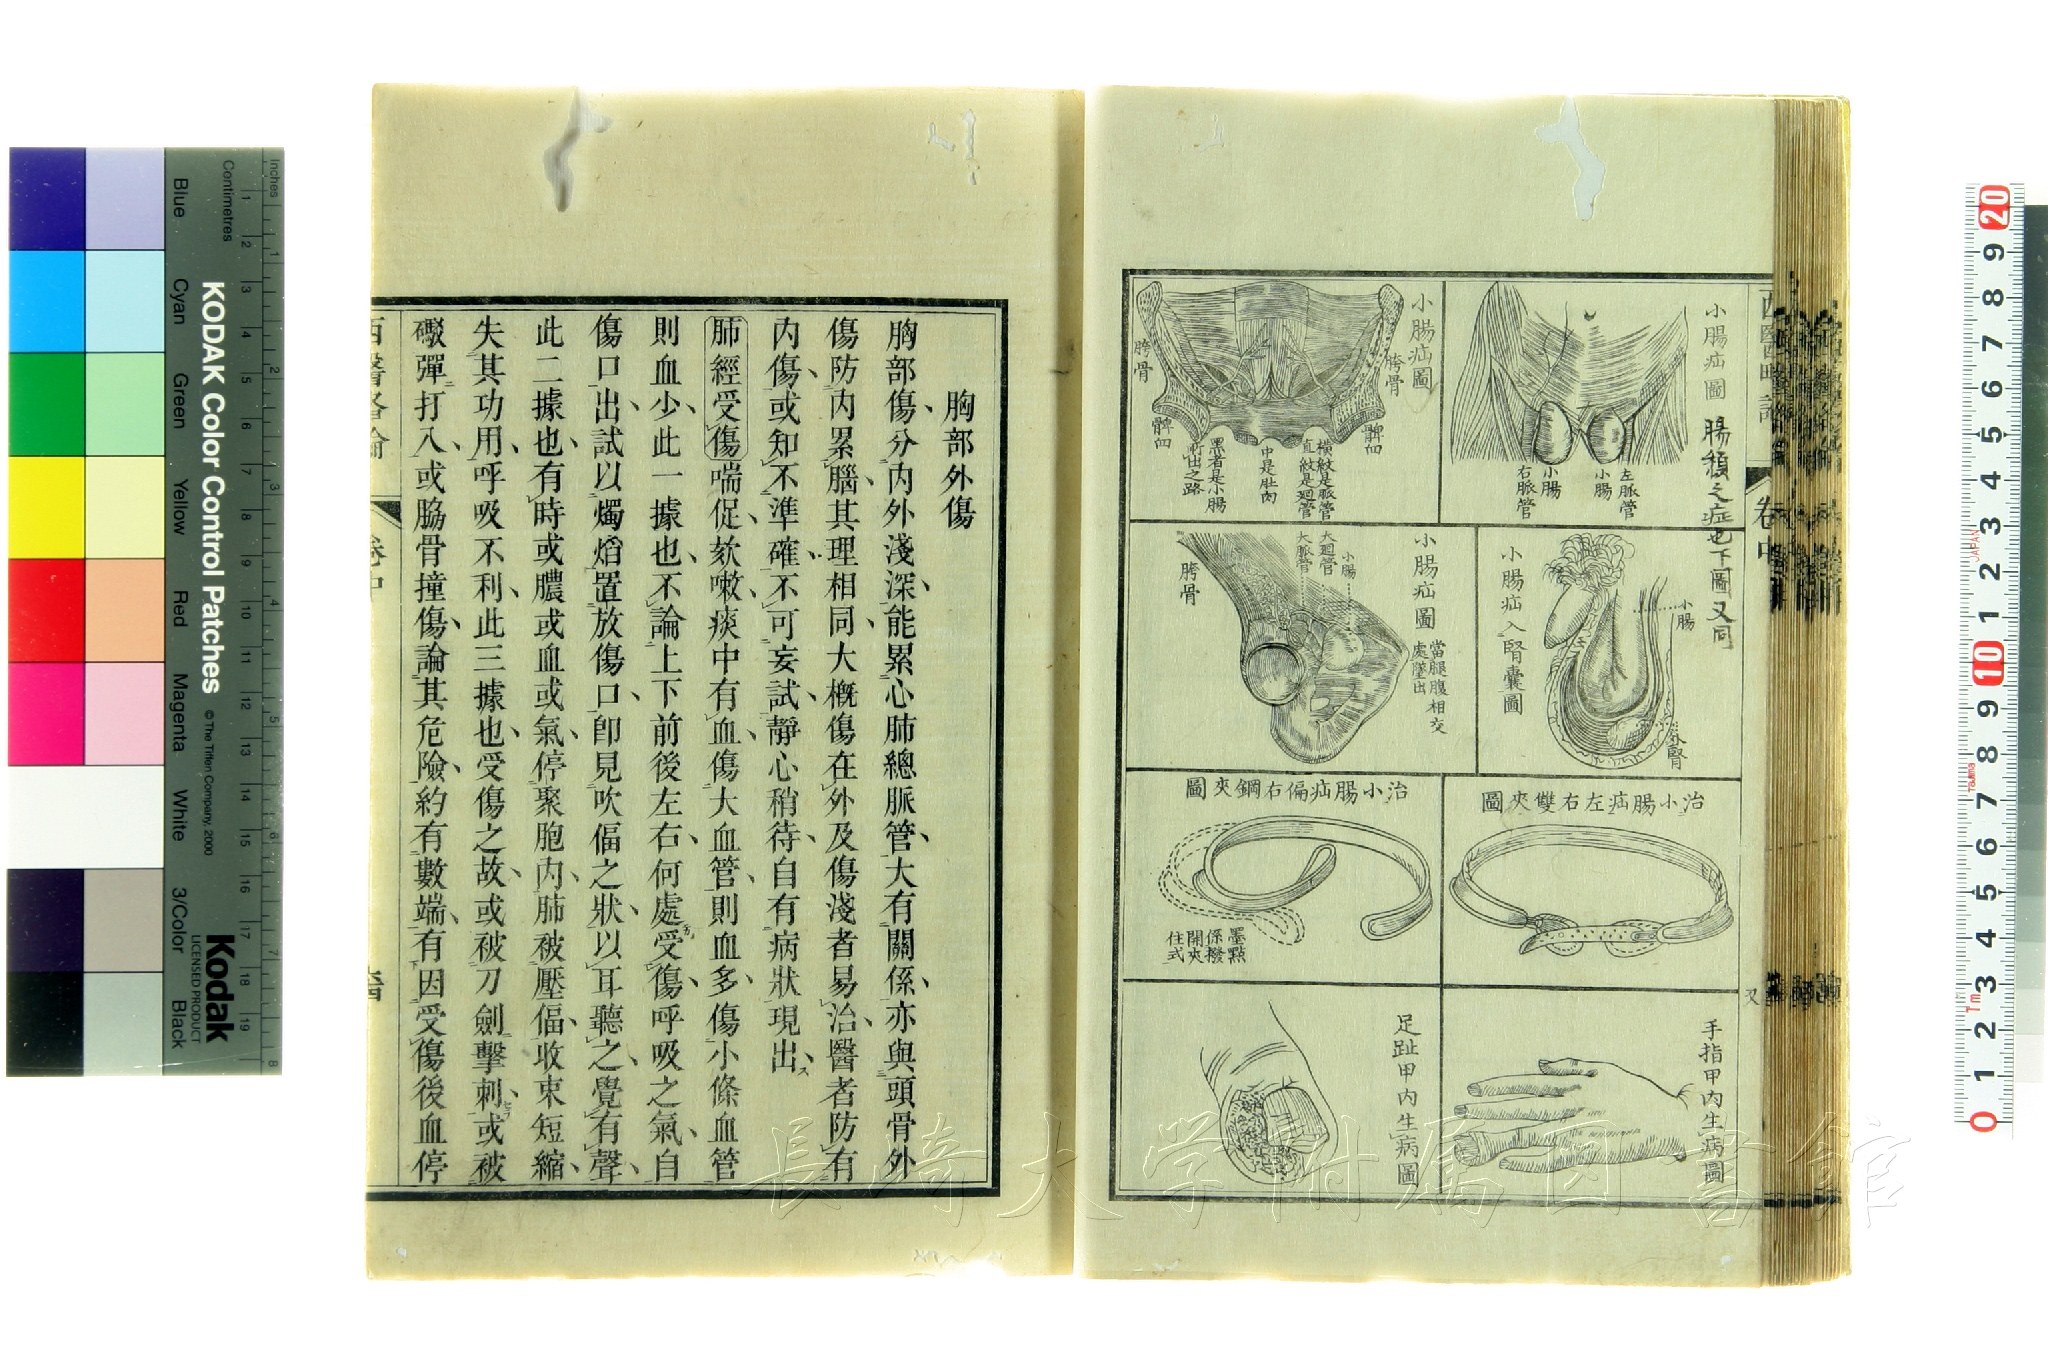 西醫略論
卷中
又
小腸疝圖
腸穨之症也下圖又同
左脈管
小腸
小腸
右脈管
小腸疝圖
胯骨
胯骨
髀臼
髀臼
橫紋是脈管
直紋是廻管
中是肚肉
黑者是小腸
所出之路
小腸疝入腎囊圖
小腸
外腎
小腸疝圖
當腿腹相交
處墜出
小腸
大廻管
大脈管
胯骨
治小腸疝左右雙夾圖
治小腸疝偏右鋼夾圖
墨點
係撥
開夾
住式
手指甲內生病圖
足趾甲內生病圖
胸部外傷
胸部傷分內外淺深能累心肺總脈管大有關係亦與頭骨外
傷防內累腦其理相同大概傷在外及傷淺者易治醫者防有
內傷或知不準確不可妄試靜心稍待自有病狀現出
肺經受傷喘促欬嗽痰中有血傷大血管則血多傷小條血管
則血少此一據也不論上下前後左右何處受傷呼吸之氣自
傷口出試以燭焰置放傷口卽見吹偪之狀以耳聽之覺有聲
此二據也有時或膿或血或氣停聚胞內肺被壓偪收束短縮
失其功用呼吸不利此三據也受傷之故或被刀劍擊刺或被
礮彈打入或脇骨撞傷論其危險約有數端有因受傷後血停
西醫略論
卷中
長崎大学附属図書館
KODAK Color Control Patches
© The Tiffen Company, 2000
Kodak
LICENSED PRODUCT
Inches
Centimetres
Blue
Cyan
Green
Yellow
Red
Magenta
White
3/Color
Black
1
2
3
4
5
6
7
8
9
10
11
12
13
14
15
16
17
18
19
1
2
3
4
5
6
7
8
20
9
8
7
6
5
4
3
2
1
10
9
8
7
6
5
4
3
2
1
0
JAPAN
Tajima